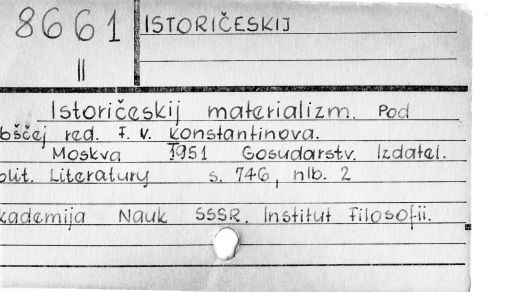 8661 ISTORIČESKIJ
II
Istoričeskij materializm. Pod
obščej red. F. V. Konstantinova.
Moskva 1951 Gosudarstv. Izdatel.
polit. Literatury s. 746, nlb. 2
Akademija Nauk SSSR. Institut Filosofii.